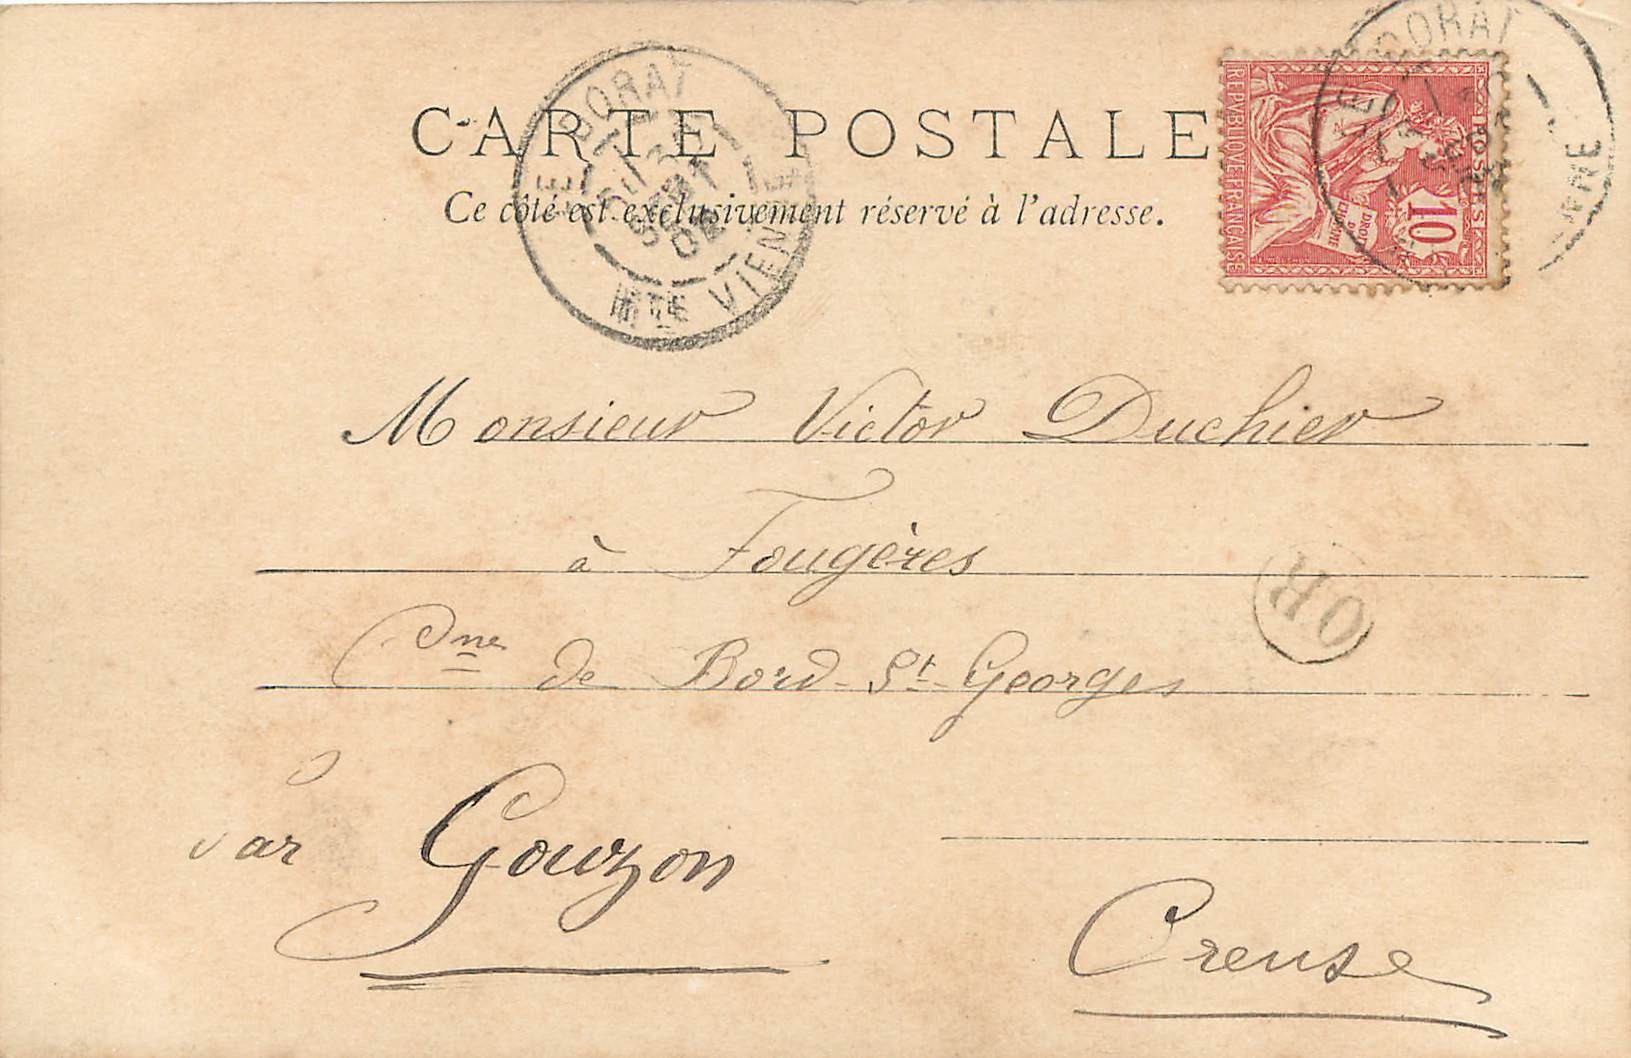 CARTE POSTALE
Ce côté est exclusivement réservé à l'adresse.
LE DORAT
SEPT
02
HTE VIENNE
REPVBLIQVE FRANÇAISE
POSTES
10
DROITS DE L'HOMME
LE DORAT
Monsieur Victor Duchier
à Fougères
OR
Cne de Bord-St-Georges
par Gouzon
Creuse